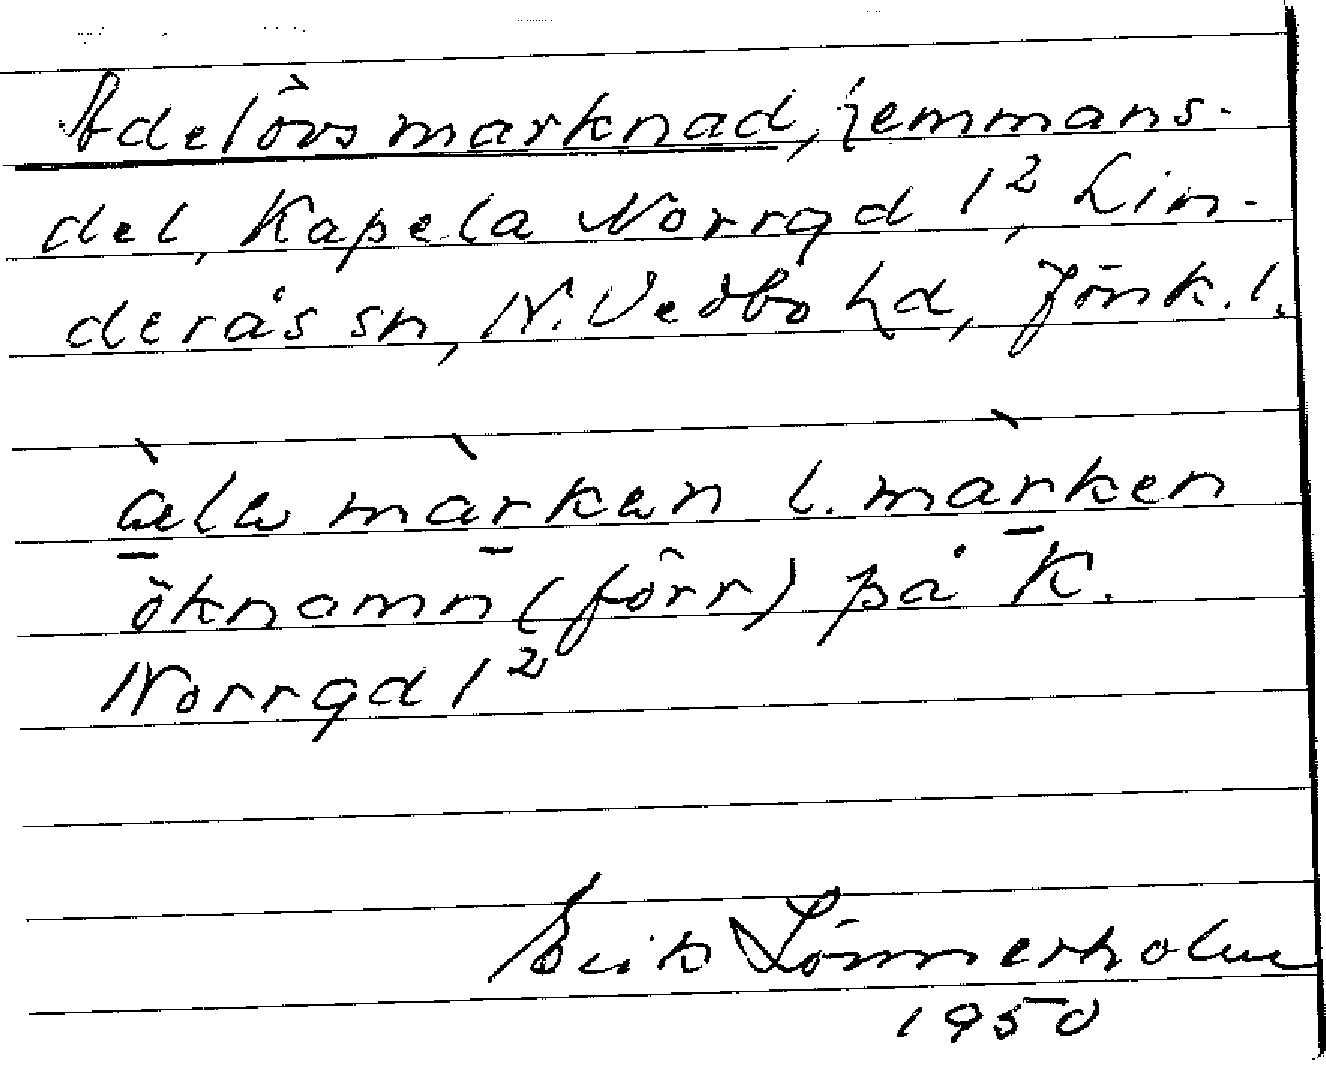 Adelövs marknad, hemmans-
del, Kapela Norrgd 1², Lin-
derås sn, N. Vedbo hd, Jönk. l.
àla màrkan l. màrken
öknamn (förr) på K.
Norrgd 1²
Erik Lönnerholm
1950